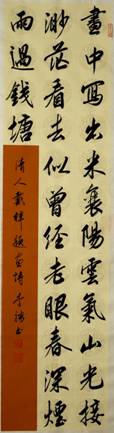 畫中寫出米襄陽雲氣山光接
渺茫看去似曾經老眼春深煙
雨過錢塘
清人戴梓題畫詩